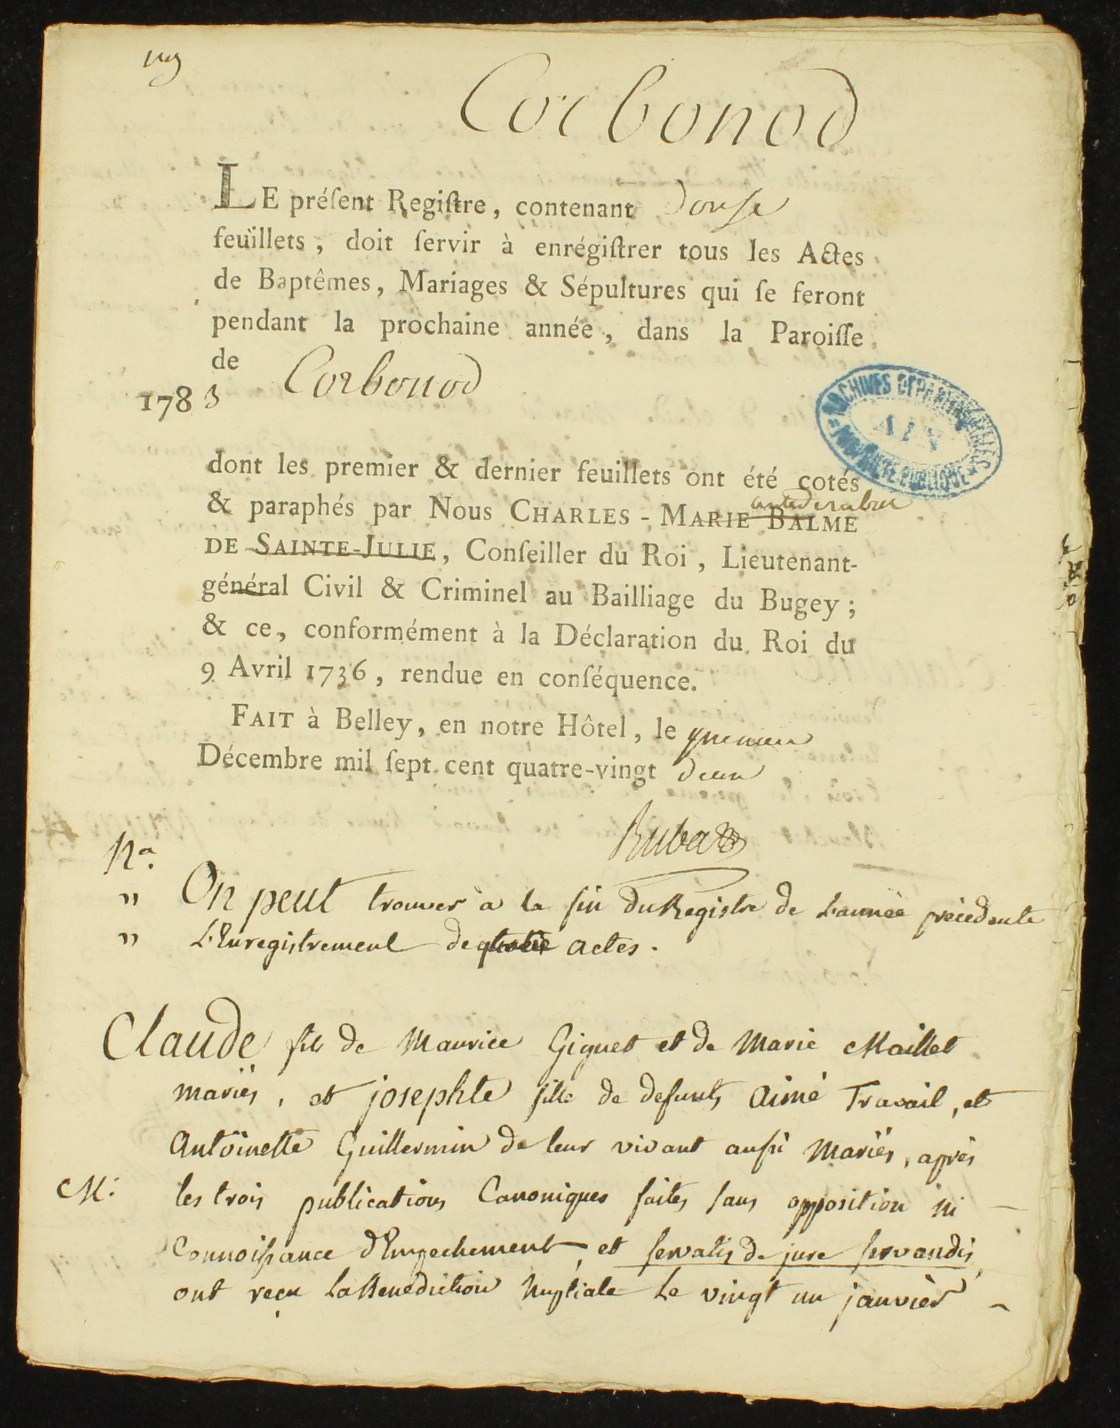 Corbonod
LE préſent Regiſtre, contenant Douſe
feuillets, doit ſervir à enrégiſtrer tous les Actes
de Baptêmes, Mariages & Sépultures qui ſe feront
pendant la prochaine année, dans la Paroiſſe
de Corbonod
1783
ARCHIVES DÉPARTEMENTALES
AIN
dont les premier & dernier feuillets ont été cotés
& paraphés par Nous CHARLES-MARIE BALME
DE SAINTE-JULIE, Conſeiller du Roi, Lieutenant-
général Civil & Criminel au Bailliage du Bugey;
& ce, conformément à la Déclaration du Roi du
9 Avril 1736, rendue en conſéquence.
FAIT à Belley, en notre Hôtel, le premier
Décembre mil ſept cent quatre-vingt deux
Rubat
Na.
" On peut trouver à la fin du Registre de L'année précédente
" L'Enregistrement de actes.
Claude fils de Maurice Giguet et de Marie Maillet
mariés, et josephte fille de defunts Aimé Travail, et
Antoinette Guillermin de leur vivant auſsi Mariés, après
M: les trois publications Canoniques faites sans opposition ni
Connoiſsance d'Empechement, et servatis de jure servandis,
ont reçu La Benediction Nuptiale Le vingt un janvier